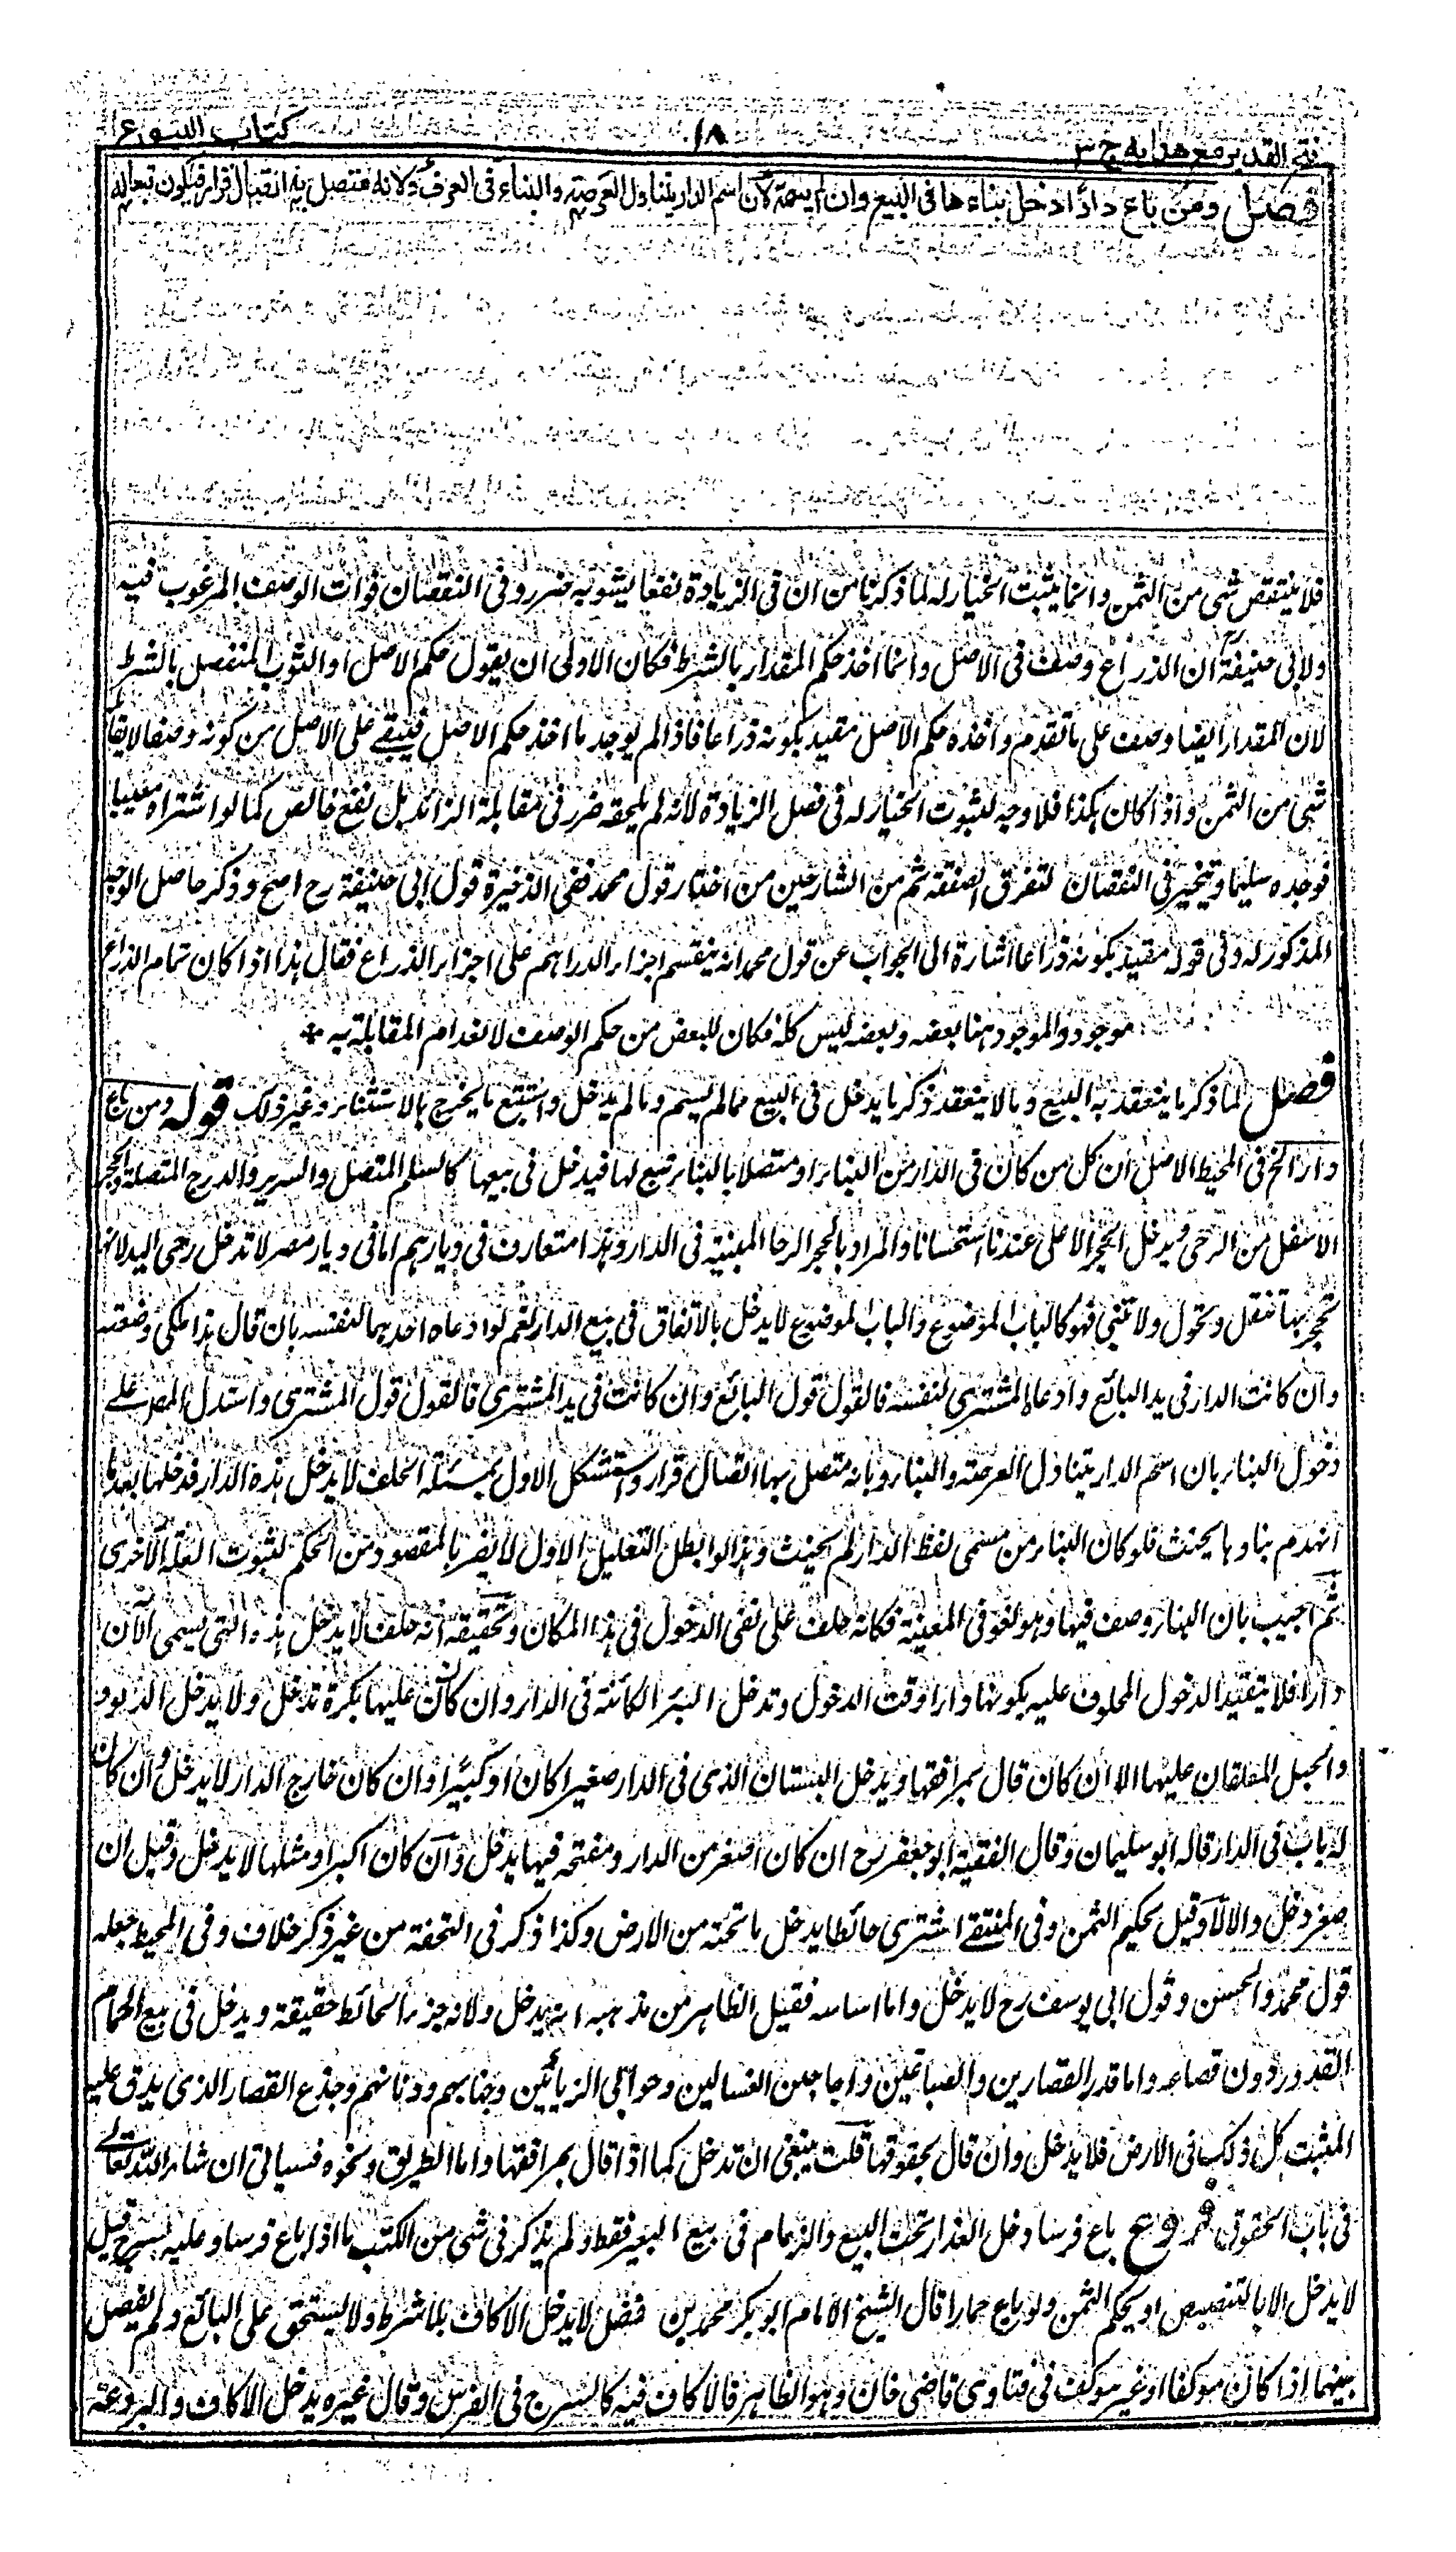 فتح القدير مع هدايه ج ٣
١٨
كتاب البيوع
فصل ومن باع دارا دخل بناءها فى البيع وان لم يسمه لان اسم الدار يتناول العرصة والبناء فى العرف ولانه متصل به اتصال قرار فيكون تبعا له
فلا ينتقص شئ من الثمن وانما يثبت الخيار له لما ذكرنا من ان فى الزيادة نفعا يشوبه ضرر وفى النقصان فوات الوصف المرغوب فيه
ولابى حنيفة رح ان الذراع وصف فى الاصل وانما اخذ حكم المقدار بالشرط فكان الاولى ان يقول حكم الاصل او الثوب المنفصل بالشرط
لان المقدار ايضا وصف على ما تقدم واخذه حكم الاصل مقيد بكونه ذراعا فاذا لم يوجد ما اخذ حكم الاصل فيبقى على الاصل من كونه وصفا لا يقابله
شئ من الثمن واذا كان هكذا فلا وجه لثبوت الخيار له فى فصل الزيادة لانه لم يلحقه ضرر فى مقابلة الزائد بل نفع خالص كما لو اشتراه معيبا
فوجده سليما ويتخير فى النقصان لتفرق الصفقة ثم من الشارحين من اختار قول محمد ففى الذخيرة قول ابى حنيفة رح اصح وذكر حاصل الوجه
المذكور له وفى قوله مقيد بكونه ذراعا اشارة الى الجواب عن قول محمد انه ينقسم اجزاء الدراهم على اجزاء الذراع فقال هذا اذا كان تمام الذراع
موجودا والموجود هنا بعضه وبعضه ليس كله فكان للبعض من حكم الوصف لانعدام المقابلة به
فصل لما ذكر ما ينعقد به البيع وما لا ينعقد ذكر ما يدخل فى البيع مما لم يسم وما لم يدخل واستتبع ما يخرج بالاستثناء وغير ذلك قوله ومن باع
دارا الخ فى المحيط الاصل ان كل من كان فى الدار من البناء او متصلا بالبناء تبع لها فيدخل فى بيعها كالسلم المتصل والسرير والدرج المتصلة والحجر
الاسفل من الرحى ويدخل الحجر الاعلى عندنا استحسانا والمراد بالحجر الرحا المبنية فى الدار وهذا متعارف فى ديارهم اما فى ديار مصر لا تدخل رحى اليد لانها
بحجريها تنقل وتحول ولا تبنى فهو كالباب الموضوع والباب الموضوع لا يدخل بالاتفاق فى بيع الدار نعم لو ادعاه احدهما لنفسه بان قال هذا ملكى وضعته
وان كانت الدار فى يد البائع وادعاه المشترى لنفسه فالقول قول البائع وان كانت فى يد المشترى فالقول قول المشترى واستدل المص على
دخول البناء بان اسم الدار يتناول العرصة والبناء وبانه متصل بها اتصال قرار واستشكل الاول بمسئلة الحلف لا يدخل هذه الدار فدخلها بعد ما
انهدم بناوها يحنث فلو كان البناء من مسمى لفظ الدار لم يحنث وهذا لو ابطل التعليل الاول لا يضر بالمقصود من الحكم لثبوت العلة الاخرى
ثم اجيب بان البناء وصف فيها وهو لغو فى المعينة فكانه حلف على نفى الدخول فى هذا المكان وتحقيقه انه حلف لا يدخل هذه التى يسمى الآن
دارا فلا يتقيد الدخول المحلوف عليه بكونها دارا وقت الدخول وتدخل البئر الكائنة فى الدار وان كان عليها بكرة تدخل ولا يدخل الدلو
والحبل المعلقان عليها الا ان كان قال بمرافقها ويدخل البستان الذى فى الدار صغيرا كان او كبيرا وان كان خارج الدار لا يدخل وان كان
له باب فى الدار قاله ابو سليمان وقال الفقيه ابو جعفر رح ان كان اصغر من الدار ومفتحه فيها يدخل وان كان اكبر او مثلها لا يدخل وقيل ان
صغر دخل والا لا وقيل يحكم الثمن وفى المنتقى اشترى حائطا يدخل ما تحته من الارض وكذا ذكر فى التحفة من غير ذكر خلاف وفى المحيط جعله
قول محمد والحسن وقول ابى يوسف رح لا يدخل واما اساسه فقيل الظاهر من مذهبه انه يدخل ولانه جزء الحائط حقيقة ويدخل فى بيع الحمام
القدور دون قصاعه واما قدر القصارين والصباغين واجاجين الغسالين وخوابى الزياتين وحبابهم ودنانهم وجذع القصار الذى يدق عليه
المثبت كل ذلك فى الارض فلا يدخل وان قال بحقوقها قلت ينبغى ان تدخل كما اذا قال بمرافقها واما الطريق ونحوه فسياتى ان شاء الله تعالى
فى باب الحقوق فروع باع فرسا دخل العذار تحت البيع والزمام فى بيع البعير فقط ولم يذكر فى شئ من الكتب ما اذا باع فرسا وعليه سرج قيل
لا يدخل الا بالتنصيص او يحكم الثمن ولو باع حمارا قال الشيخ الامام ابو بكر محمد بن فضل لا يدخل الاكاف بلا شرط ولا يستحق على البائع ولم يفصل
بينهما اذا كان موكفا او غير موكف فى فتاوى قاضى خان وهو الظاهر فالاكاف فيه كالسرج فى الفرس وقال غيره يدخل الاكاف والبرذعة